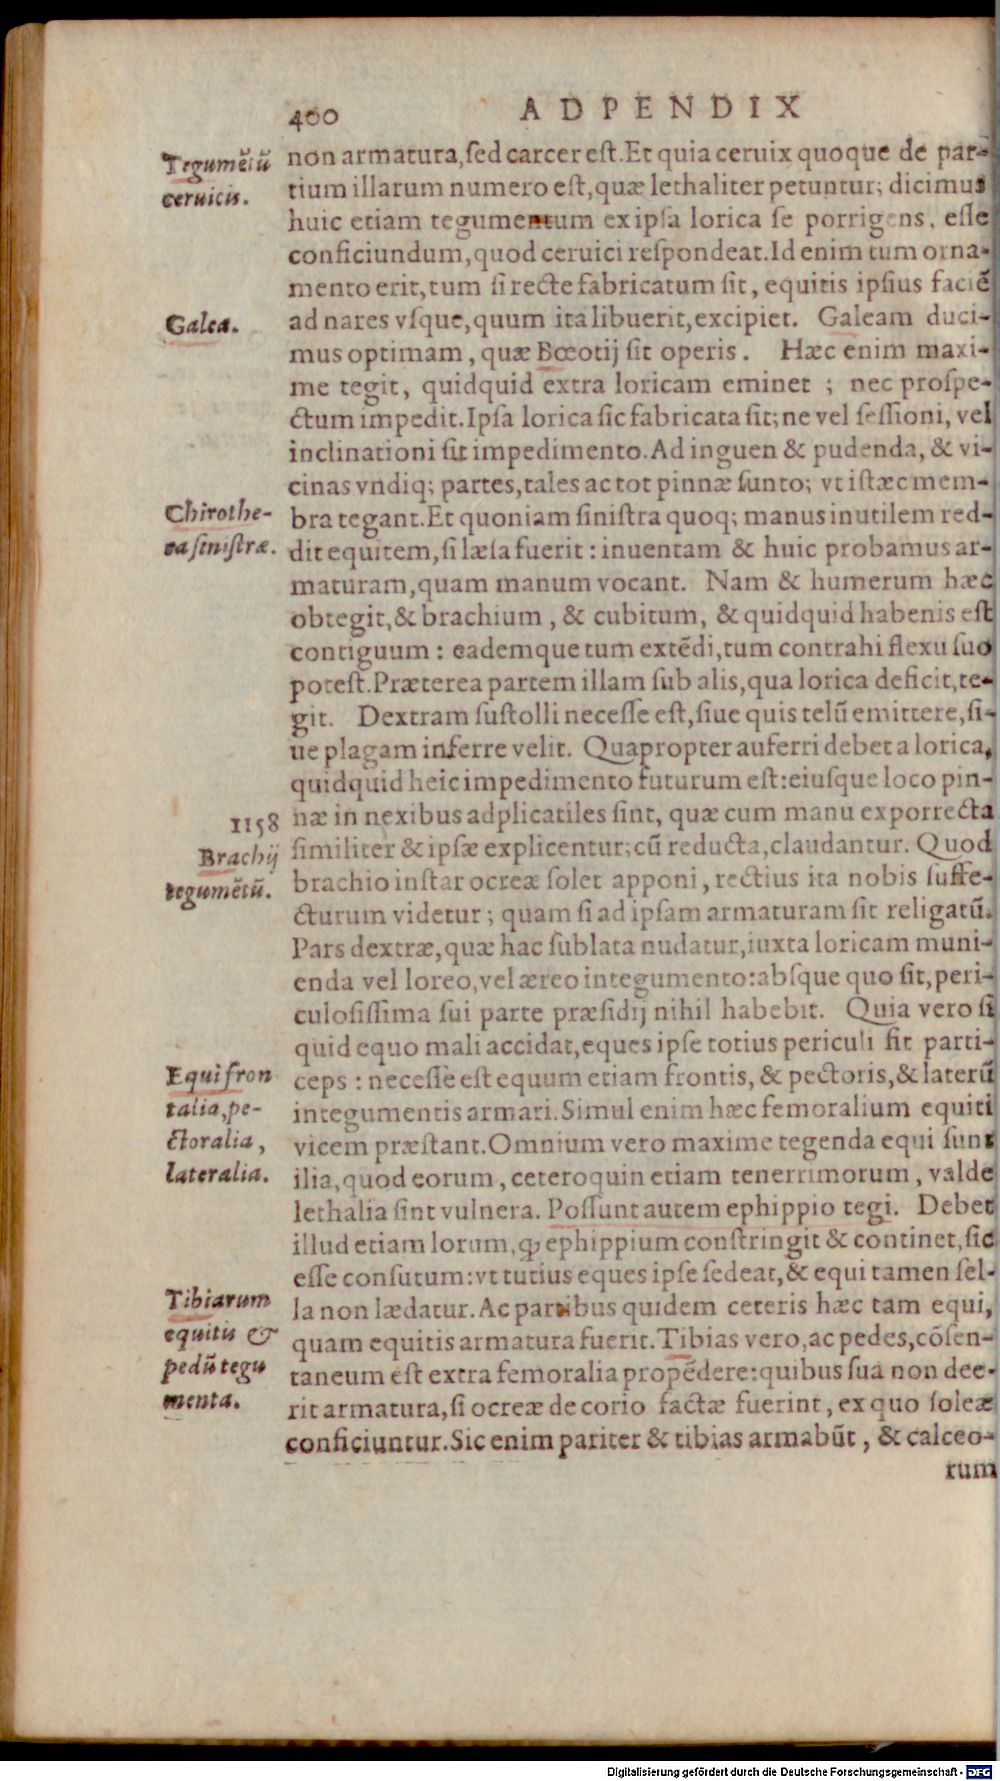 400 ADPENDIX
Tegumētū
ceruicis.
non armatura, sed carcer est. Et quia ceruix quoque de par-
tium illarum numero est, quæ lethaliter petuntur; dicimus
huic etiam tegumentum ex ipsa lorica se porrigens, esse
conficiundum, quod ceruici respondeat. Id enim tum orna-
mento erit, tum si recte fabricatum sit, equitis ipsius faciē
Galea.
ad nares vsque, quum ita libuerit, excipiet. Galeam duci-
mus optimam, quæ Bœotij sit operis. Hæc enim maxi-
me tegit, quidquid extra loricam eminet ; nec prospe-
ctum impedit. Ipsa lorica sic fabricata sit; ne vel sessioni, vel
inclinationi sit impedimento. Ad inguen & pudenda, & vi-
cinas vndiq; partes, tales ac tot pinnæ sunto; vt istæc mem-
Chirothe-
ca sinistræ.
bra tegant. Et quoniam sinistra quoq; manus inutilem red-
dit equitem, si læsa fuerit : inuentam & huic probamus ar-
maturam, quam manum vocant. Nam & humerum hæc
obtegit, & brachium, & cubitum, & quidquid habenis est
contiguum : eademque tum extēdi, tum contrahi flexu suo
potest. Præterea partem illam sub alis, qua lorica deficit, te-
git. Dextram sustolli necesse est, siue quis telū emittere, si-
ue plagam inferre velit. Quapropter auferri debet a lorica,
quidquid heic impedimento futurum est: eiusque loco pin-
1158
Brachij
tegumētū.
næ in nexibus adplicatiles sint, quæ cum manu exporrecta
similiter & ipsæ explicentur; cū reducta, claudantur. Quod
brachio instar ocreæ solet apponi, rectius ita nobis suffe-
cturum videtur; quam si ad ipsam armaturam sit religatū.
Pars dextræ, quæ hac sublata nudatur, iuxta loricam muni-
enda vel loreo, vel æreo integumento: absque quo sit, peri-
culosissima sui parte præsidij nihil habebit. Quia vero si
quid equo mali accidat, eques ipse totius periculi fit parti-
Equi fron
talia, pe-
ctoralia,
lateralia.
ceps : necesse est equum etiam frontis, & pectoris, & laterū
integumentis armari. Simul enim hæc femoralium equiti
vicem præstant. Omnium vero maxime tegenda equi sunt
ilia, quod eorum, ceteroquin etiam tenerrimorum, valde
lethalia sint vulnera. Possunt autem ephippio tegi. Debet
illud etiam lorum, ꝙ ephippium constringit & continet, sic
esse consutum: vt tutius eques ipse sedeat, & equi tamen sel-
Tibiarum
equitis &
pedū tegu
menta.
la non lædatur. Ac partibus quidem ceteris hæc tam equi,
quam equitis armatura fuerit. Tibias vero, ac pedes, cōsen-
taneum est extra femoralia propēdere: quibus sua non dee-
rit armatura, si ocreæ de corio factæ fuerint, ex quo soleæ
conficiuntur. Sic enim pariter & tibias armabūt, & calceo-
rum
Digitalisierung gefördert durch die Deutsche Forschungsgemeinschaft - DFG